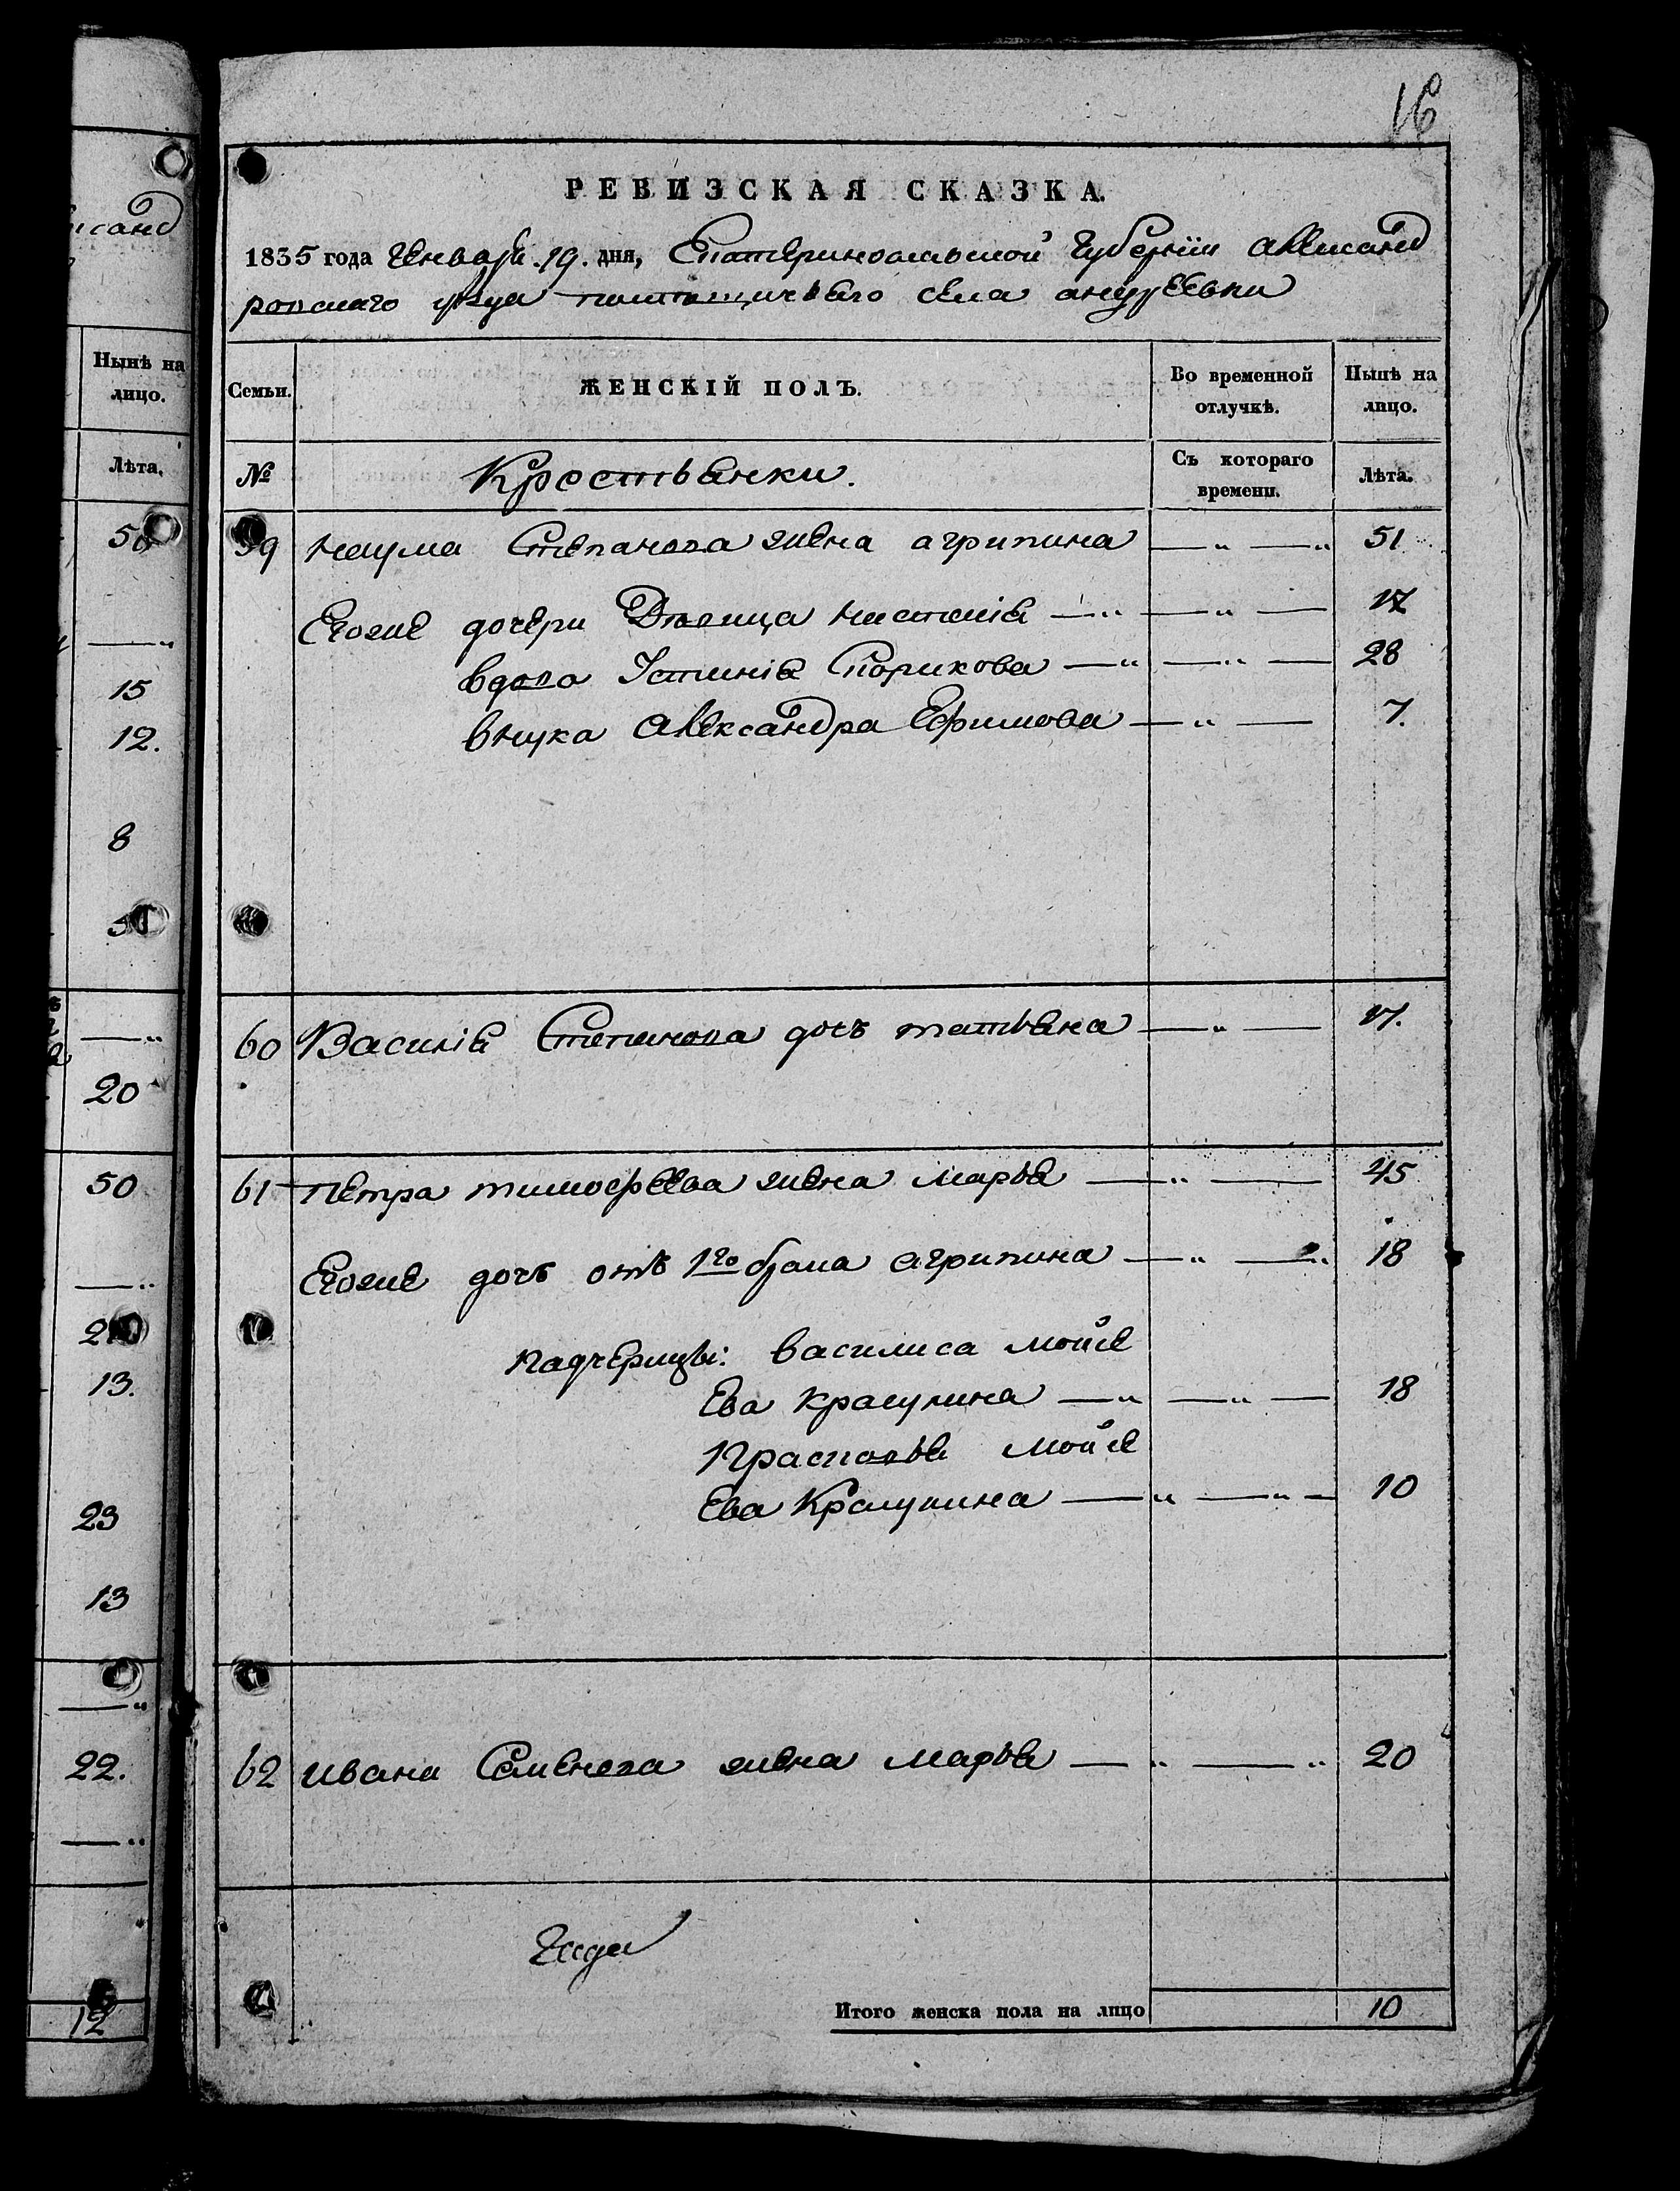 16
РЕВИЗСКАЯ СКАЗКА.
1835 года Генваря 19. дня, Екатеринославской Губерніи Александ
ровскаго уѣзда помѣщичьяго села андреевки
Семьи. ЖЕНСКІЙ ПОЛЪ. Во временной отлучкѣ. Нынѣ на лицо.
№ Крестьянки. Съ котораго времени. Лѣта.
59 Наума Степанова жена агрипина — " — " 51
Егоже дочери Дѣвица Настасія — " — " — 17
вдова Устинія Спорикова — " — " — 28
внука Александра Ефимова — " — 7.
60 Василія Степанова дочъ татьяна — " — 17.
61 петра тимофеева жена марья — " — 45
Егоже дочъ отъ 1го брака агрипина — " — " 18
падчерицы: василиса мойсе
Ева Крагулина — " — " — 18
Прасковья Мойсе
Ева Крагулина — " — " — 10
62 ивана Семенова жена марья — " — " 20
Итого женска пола на лицо 10
исанд
Нынѣ на
лицо.
Лѣта.
50
— "
15
12.
8
— "
20
50
— "
13.
23
13
— "
22.
— "
12